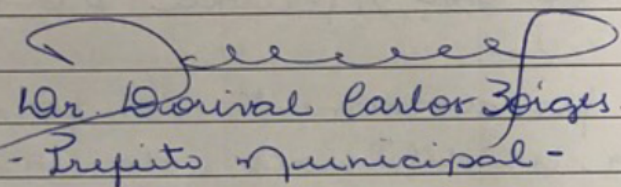 Dr. Dorival Carlos Borges.
- Prefeito Municipal -